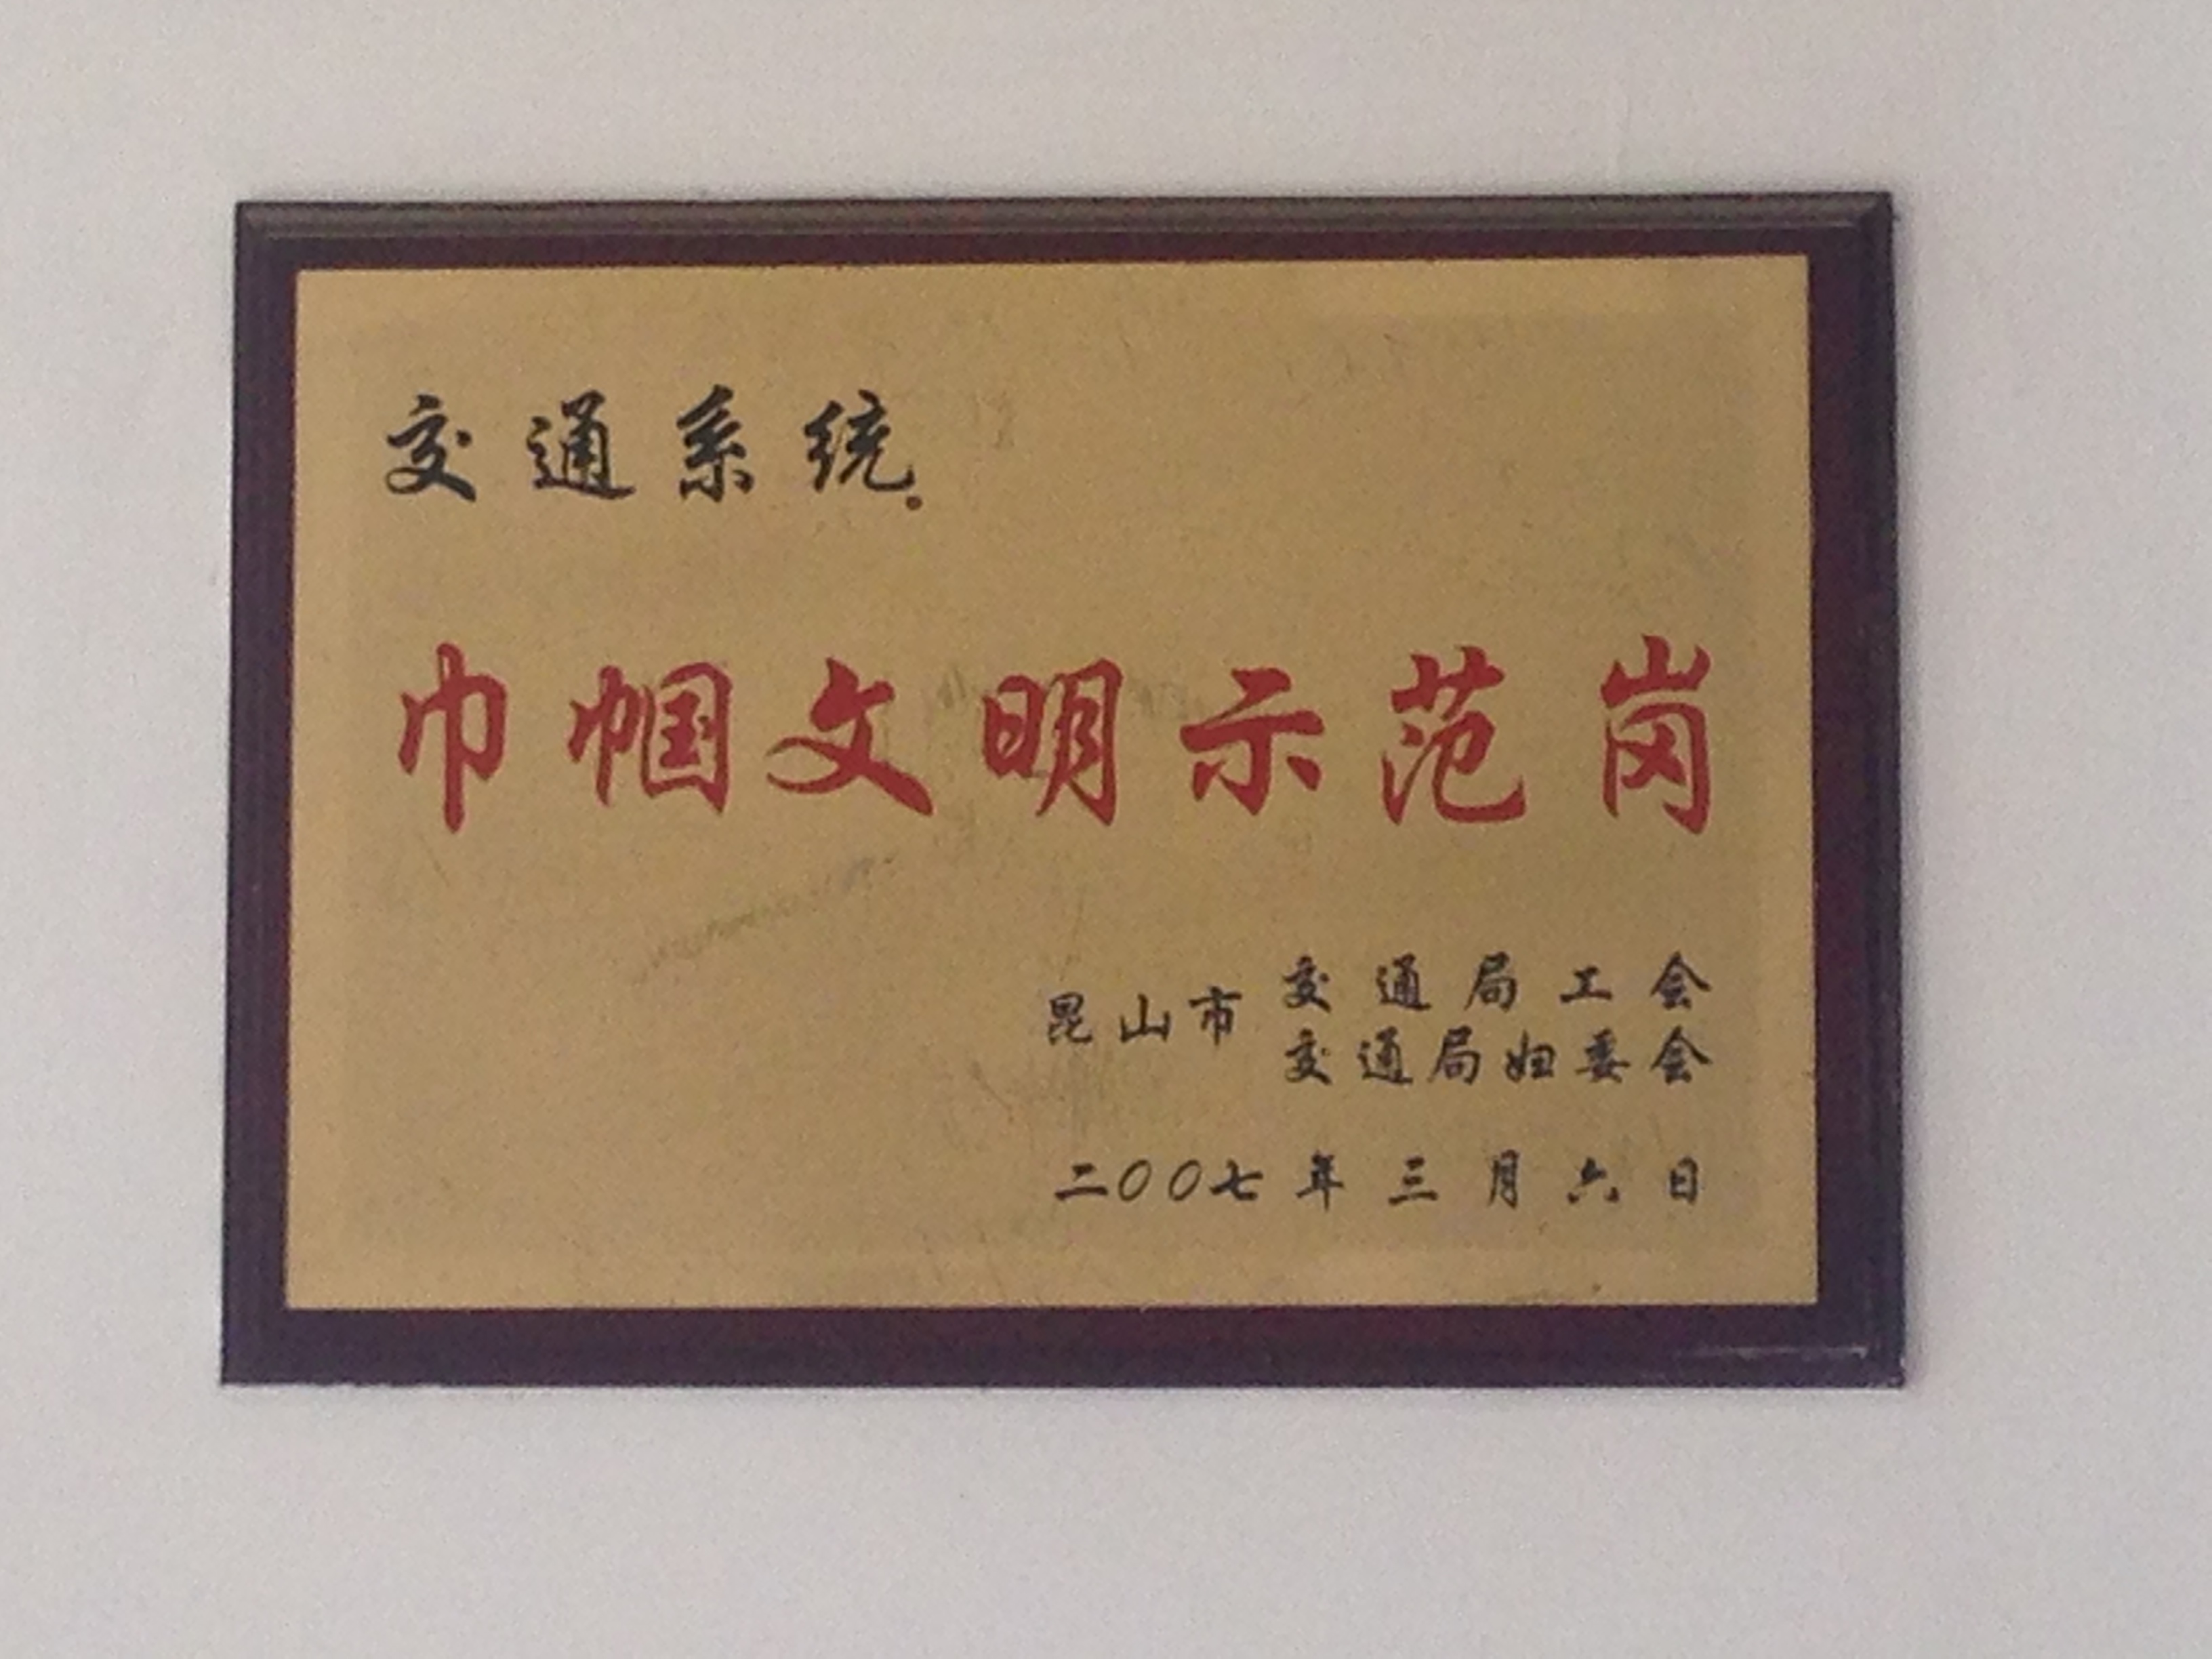 交通系统
巾帼文明示范岗
昆山市
交通局工会
交通局妇委会
二〇〇七年三月六日